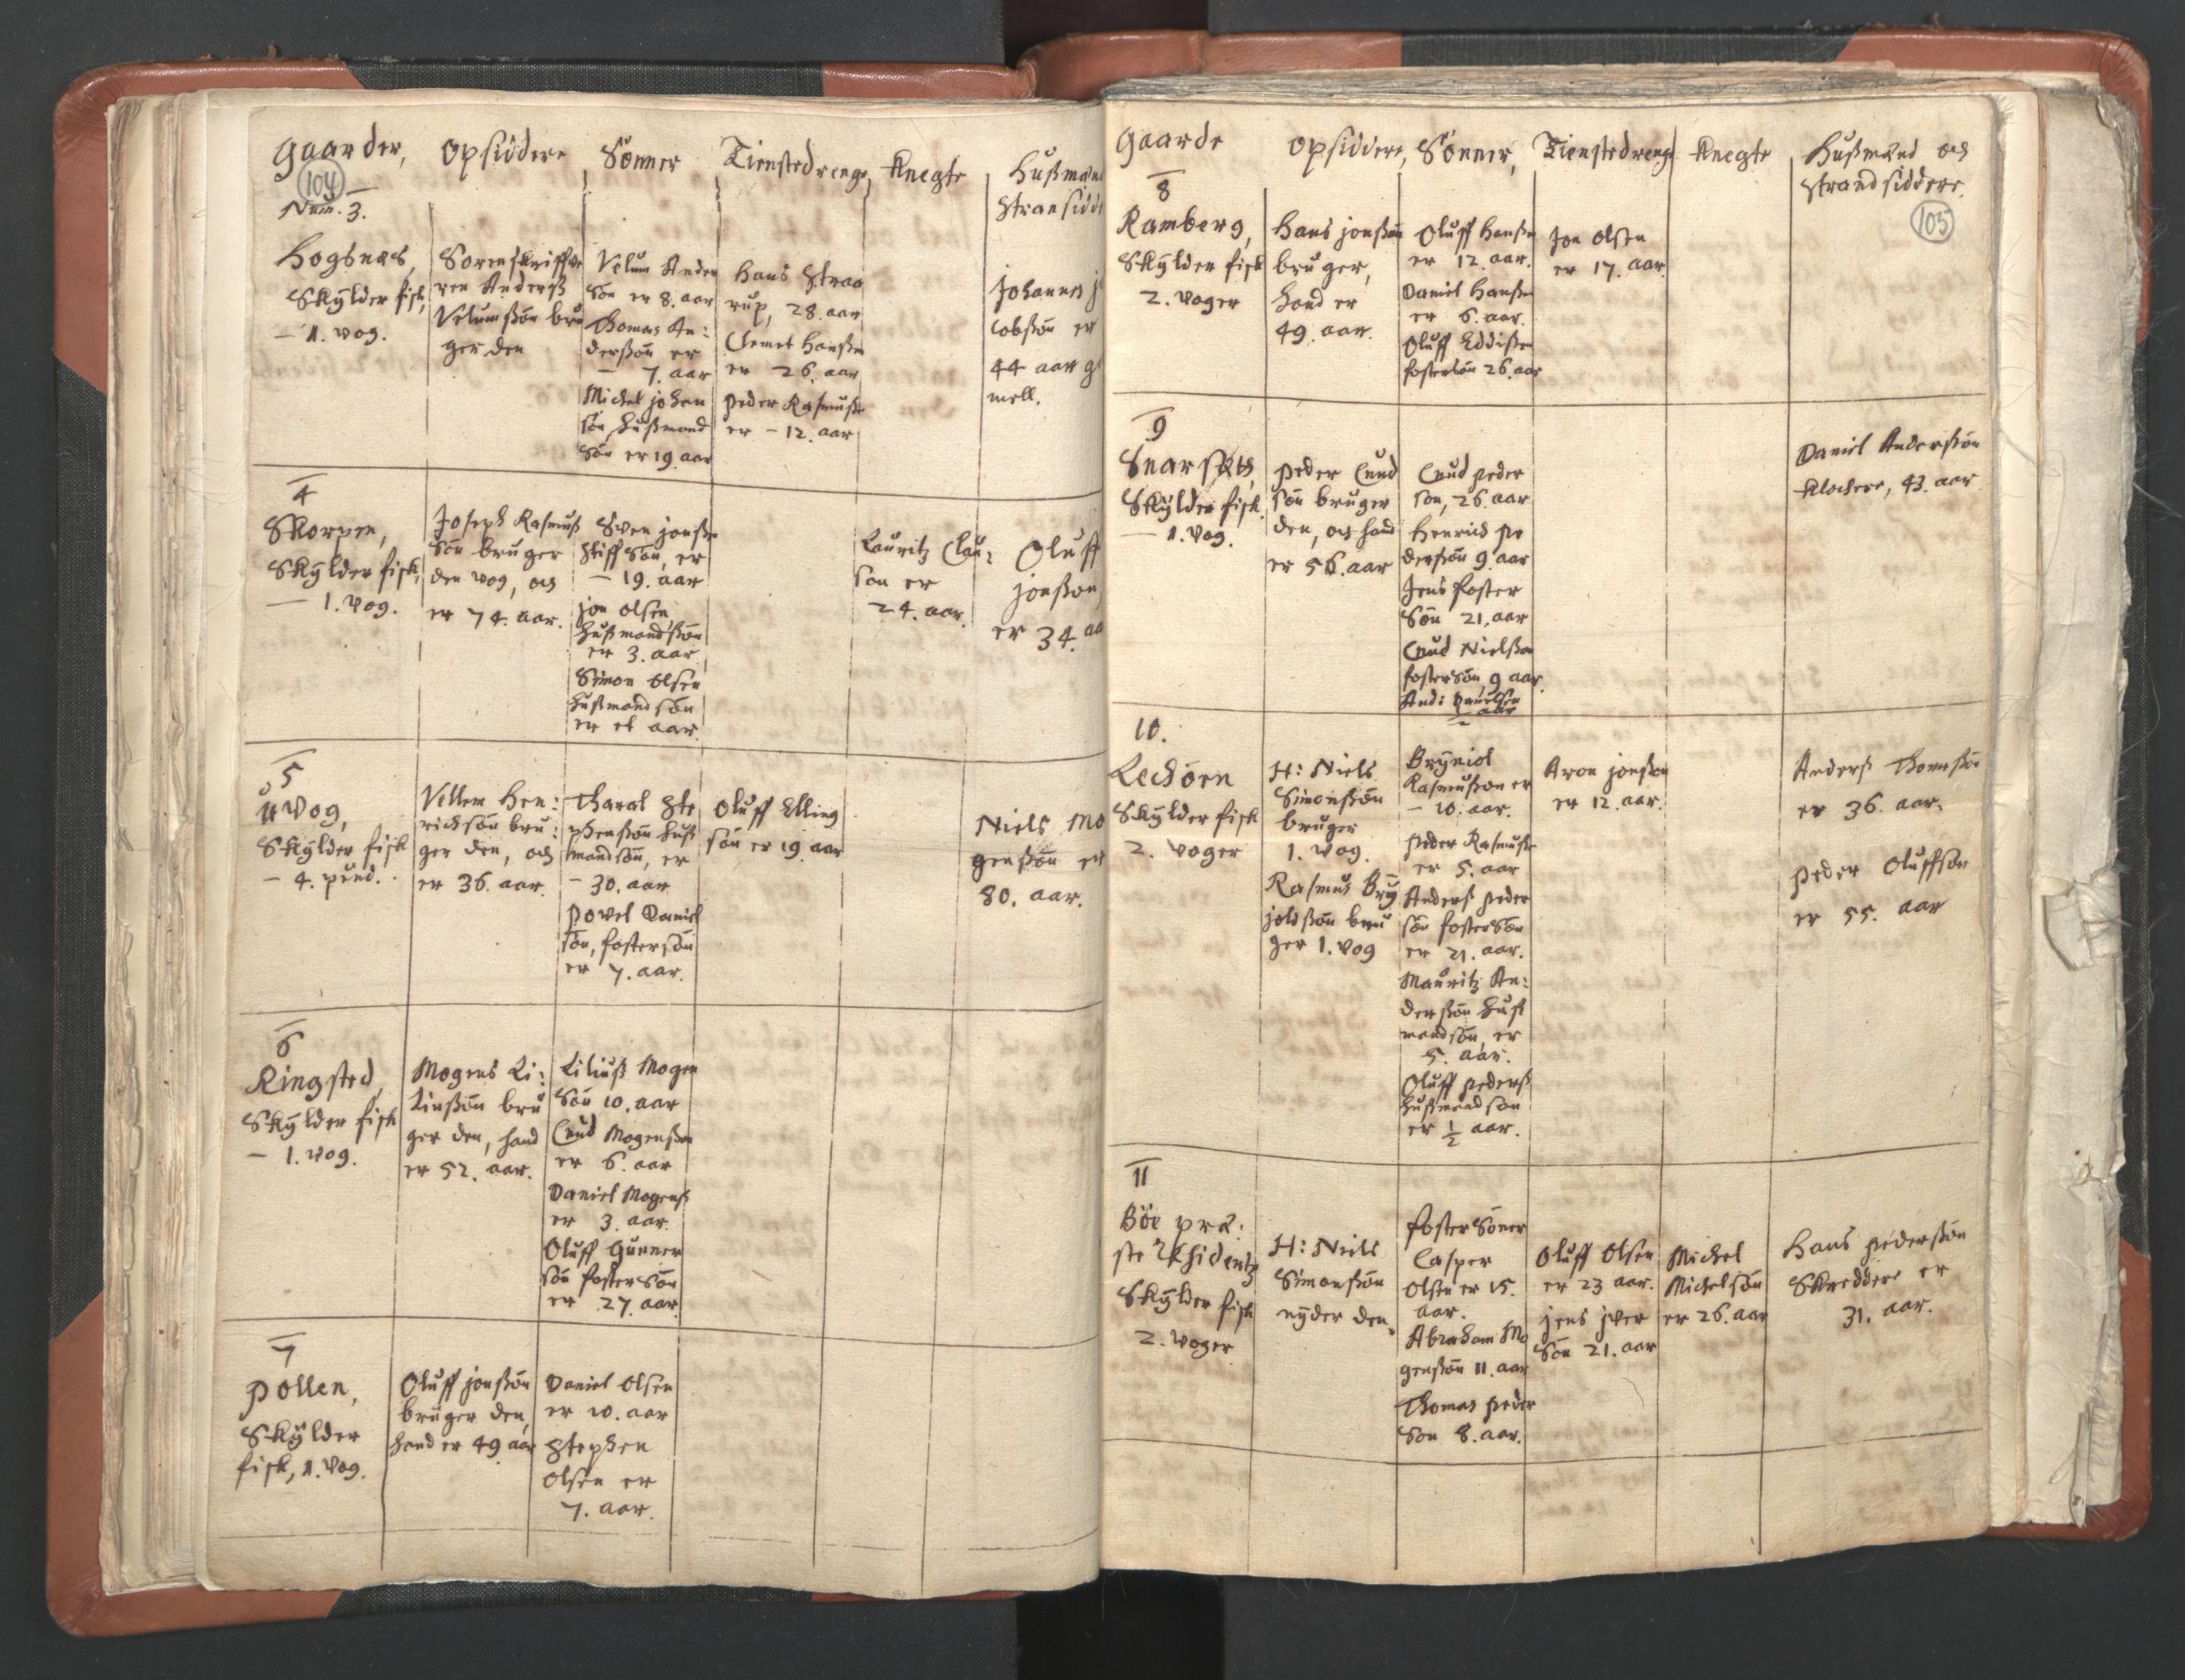 Gaarder, Opsiddere Sönner Tienstedrenge, Knegte
104
Num. 3.
Hogsnæs,
Skÿlder fisk,
– 1. vog.
Sorenskriffve
ren Anderß
Vilumßön bru
ger den
Vilum Ander
Sön er 8. aar
Thomas An:
derßön er
– 7. aar
Michel johan
sön, hußmand
Sön er 19 aar
Hans Straa
rup, 28. aar
Clemet Hanßen
er 26. aar
Peder Rasmuße
er – 12. aar
44 aar
mell.
4
Skorpen,
Skÿlder fisk,
— 1. vog.
Joseph Rasmuß
sön bruger
den vog, och
er 74. aar.
Sven jonße
Stiffsön, er
– 19. aar
jon olsen
hußmandßön
er 3. aar
Simon olsen
hußmandsön
er et aar.
Lauritz Clau:
son er
24. aar.
Oluff
jonßon
er 34. aa
5
Vog,
Skÿlder fisk
– 4. pund.
Villem Hen:
richsön bru:
ger den, och
er 36. aar.
Tharal Ste
phenßön huß
mandsön, er
– 30. aar
Povel Daniel
sön, fostersön
er 7. aar.
Oluff Elling
sön er 19 aar
Niels Mo
genßön er
80. aar.
6
Ringsted,
Skÿlder fisk
– 1. vog.
Mogens Li:
Liußön bru
ger den, hand
er 52. aar.
Liliuß Mogen
Sön 10. aar
Cnud Mogenßen
er 6. aar
Daniel Mogenß
er 3. aar.
Oluff Gunner
sön fostersön
er 27. aar
7
Pollen,
Skÿlder
fisk, 1. vog.
Oluff jonßön
bruger den,
hand er 49 aar
Daniel Olsen
er 10. aar
Stephen
Olsen er
7. aar.
Gaarde Opsiddere, Sönner, Tienstedrenge Knegte Hußmænd och
Strandsiddere.
105
8
Ramberg,
Skÿlder fisk
2. voger
Hans jonßön
bruger,
hand er
49. aar.
Oluff Hanßen
er 12. aar.
Daniel Hanßen
er 6. aar.
Oluff Eddißen
fostersön 26. aar
Jon Olsen
er 17. aar.
9
Skÿlder fisk.
– 1. vog.
Peder Cnud
sön bruger
den, och hand
er 56. aar
Cnud Peder
son, 26. aar
Henrich Pe
derßön 9. aar
Jens foster
Sön 21. aar
Cnud Nielßen
fostersön, 9 aar.
Daniel Anderßön
Klockere, 43. aar
10.
Leckören
Skÿlder fisk
2. voger
H: Niels
Simonßön
bruger
1. vog.
Rasmus Brÿ
joldßön bru
ger 1. vog
Brÿniol
Rasmußon er
– 10. aar.
Peder Rasmuße
er 5. aar
Anderß Peder
sön fostersön
er 21. aar.
Mauritz An:
derßön huß
mandsön, er
5. aar.
Oluff Pederß
hußmandson
er 1/2 aar.
Aron jonßon
er 12. aar.
Anderß Thomßön
er 36. aar.
Peder Oluffson
er 55. aar
11
Böe præ:
Skÿlder fisk
2. voger
H: Niels
Simonßön
nÿder den.
foster Söner
Casper
Olsen er 15.
aar.
Abraham Mo
genßön 11. aar
Thomas Peder
Son 8. aar.
Oluff Olsen
er 23 aar.
jens jver
Sön 21. aar
Michel
Michelsön
er 26. aar
Hans Pederßön
Skreddere er
31. aar.